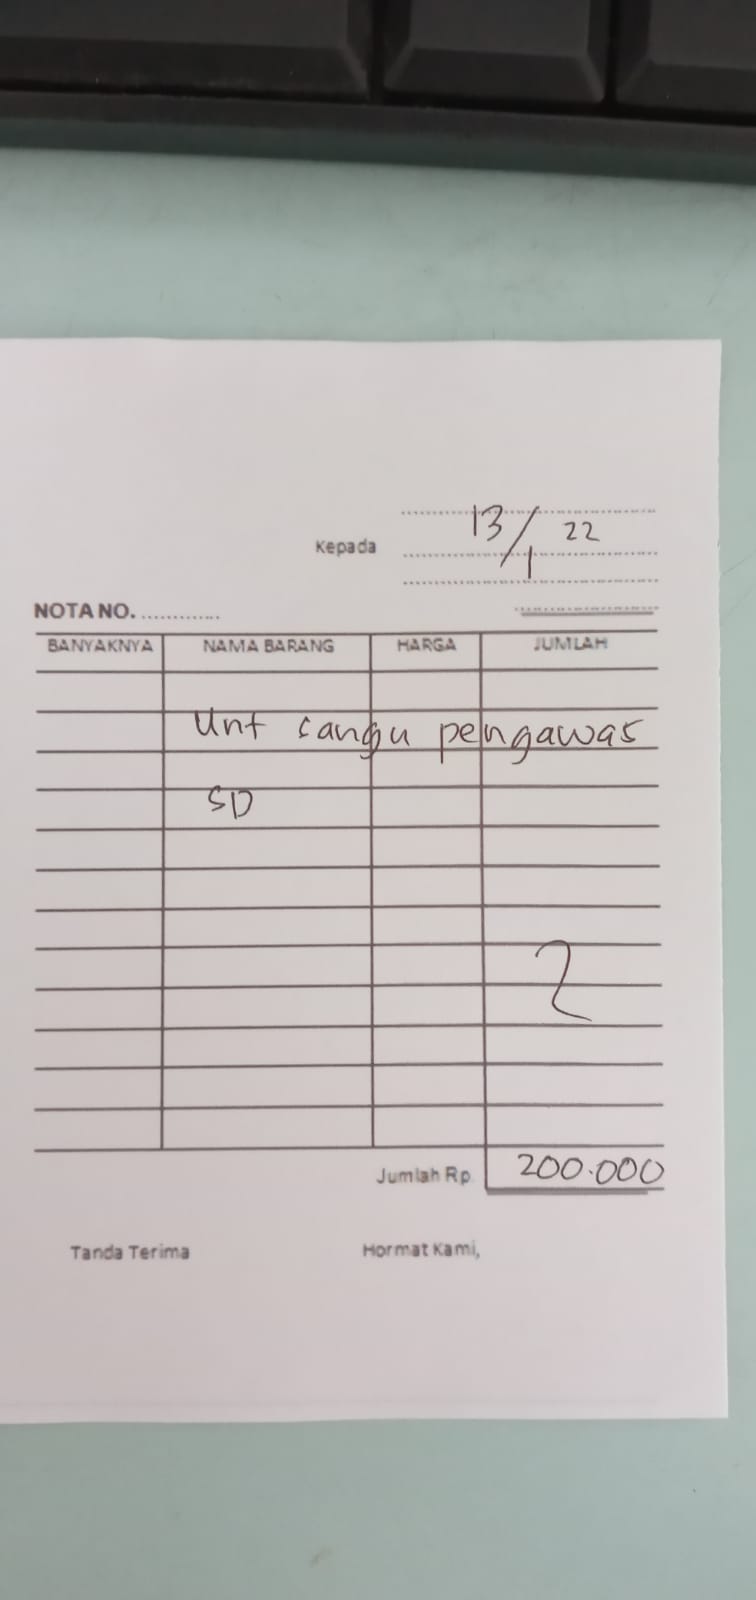 13/1 22
Kepada
NOTA NO. ............
BANYAKNYA NAMA BARANG HARGA JUMLAH
Unt sangu pengawas
SD
2
Jumlah Rp 200.000
Tanda Terima Hormat Kami,